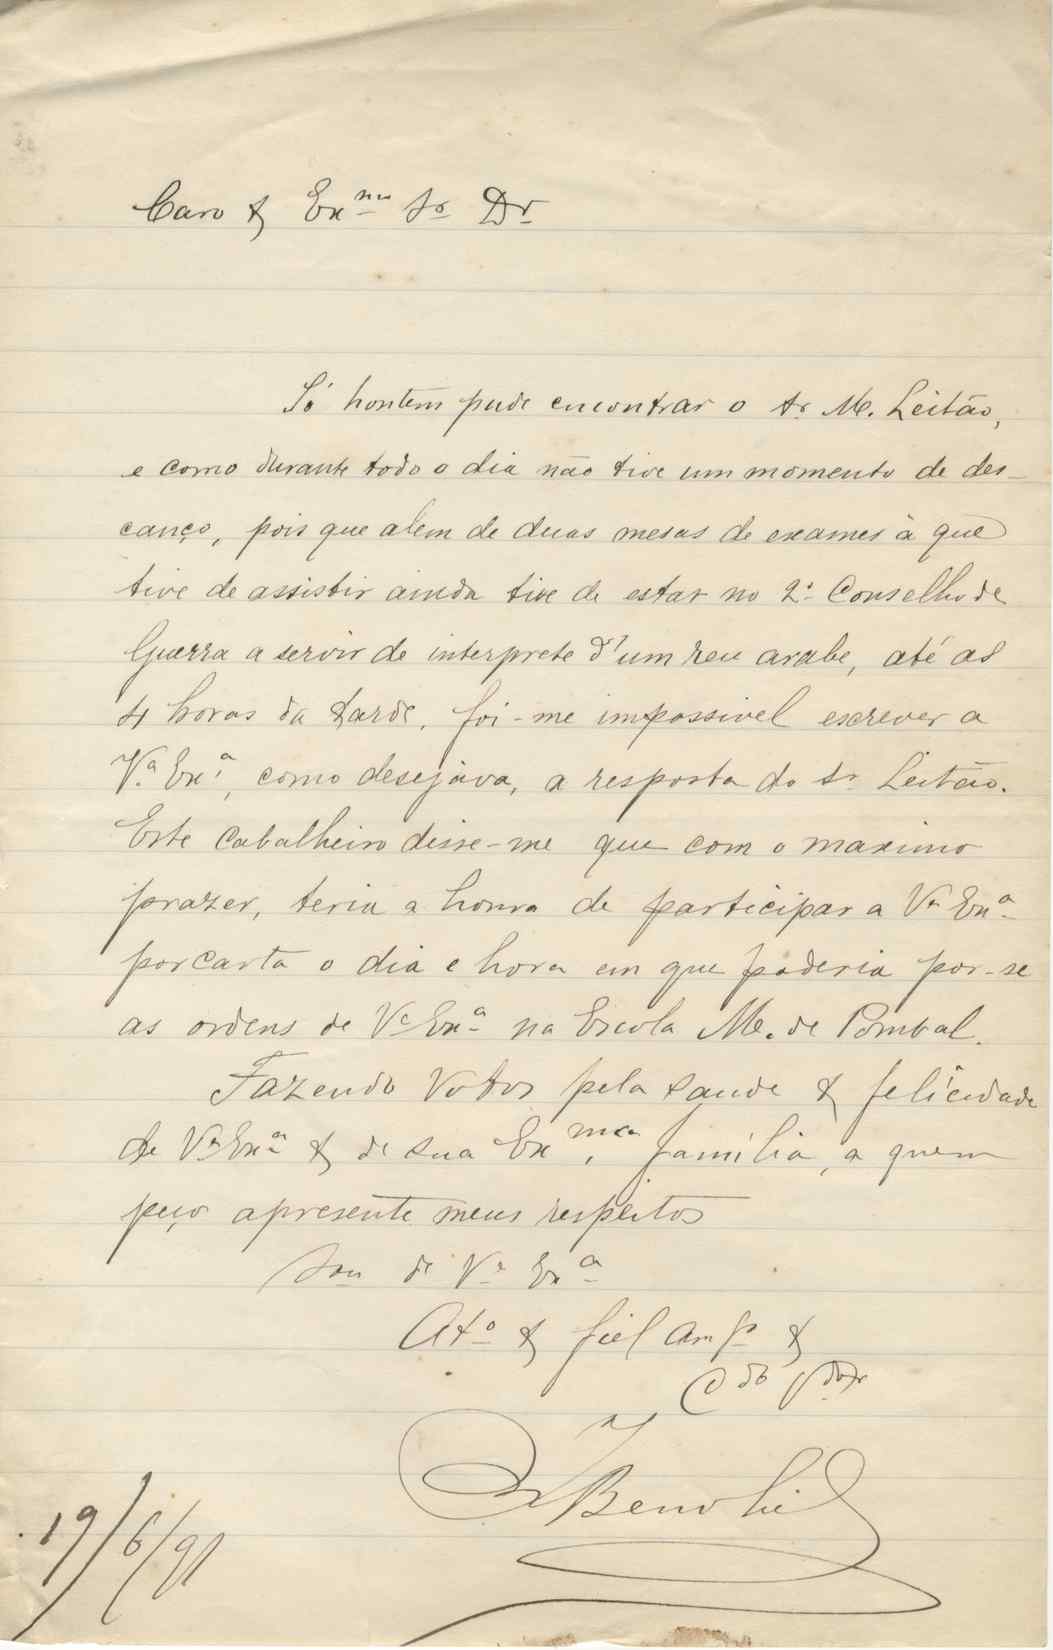 Caro & Ex.mo Sr. Dr.
Só hontem pude encontrar o Sr. M. Leitão,
e como durante todo o dia não tive um momento de des-
canço, pois que alem de duas mesas de exames à que
tive de assistir ainda tive de estar no 2.º Conselho de
Guerra a servir de interprete d'um reu arabe, até as
4 horas da tarde, foi-me impossivel escrever a
V.ª Ex.ª, como desejava, a resposta do Sr. Leitão.
Este cabalheiro disse-me que com o maximo
prazer, teria a honra de participar a V.ª Ex.ª
por carta o dia e hora em que poderia por-se
as ordens de V.ª Ex.ª na Escola M. de Pombal.
Fazendo votos pela saude & felicidade
de V.ª Ex.ª & de sua Ex.ma familia, a quem
peço apresente meus respeitos
Sou de V.ª Ex.ª
At.º & fiel Am.º &
C.do V.dor
J Benoliel
19/6/91